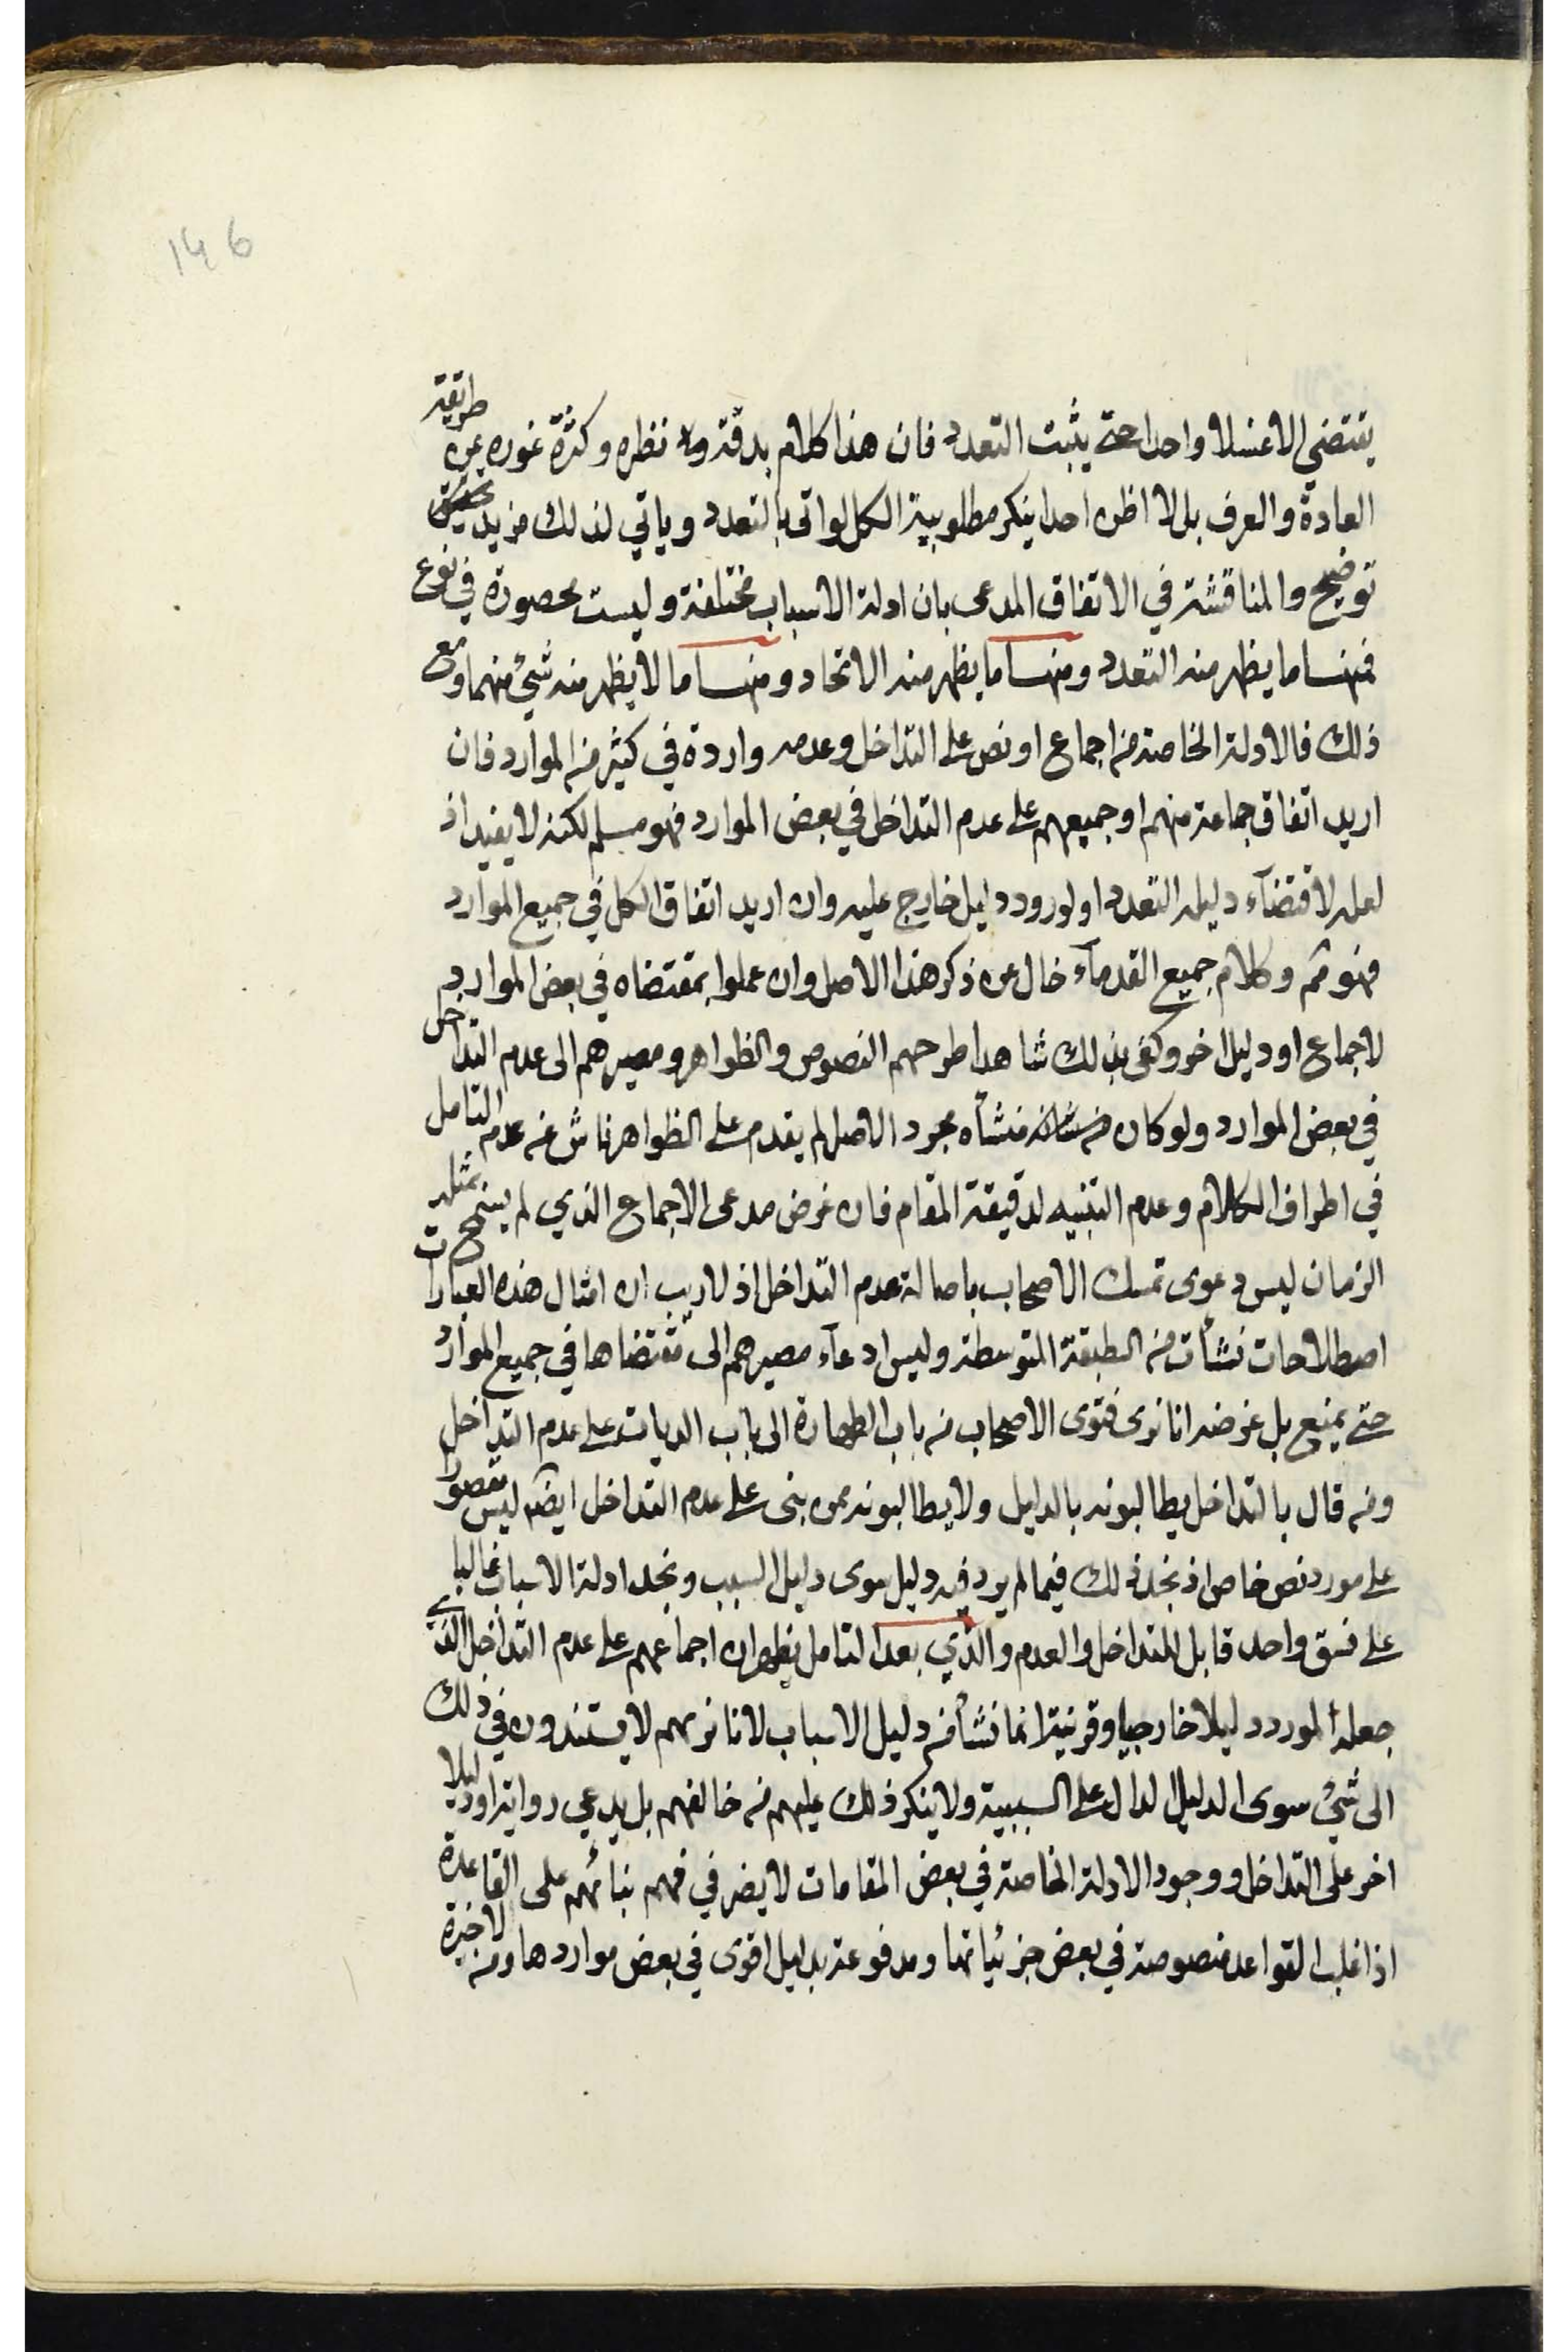 146
يقتضي الا غسلا واحدا حتى يثبت التعدد فان هذا كلام بدقته ود نظره وكثرة غوره عن طريقة
العادة والعرف بل لا اظن احدا ينكر مطلوبية الكل لو اتى بالتعدد وياتي لذلك مزيد تحقيق
توضيح والمناقشة في الاتفاق المدعى بان ادلة الاسباب مختلفة وليست محصورة في نوع
فمنها ما يظهر منه التعدد ومنها ما يظهر منه الاتحاد ومنها ما لا يظهر منه شئ منهما ومع
ذلك فالادلة الخاصة من اجماع او نص على التداخل وعدمه واردة في كثير من الموارد فان
اريد اتفاق جماعة منهم او جميعهم على عدم التداخل في بعض الموارد فهو مسلم لكنه لا يفيد اذ
لعله لاقتضآء دليله التعدد او لورود دليل خارج عليه وان اريد اتفاق الكل في جميع الموارد
فهو مم وكلام جميع القدمآء خال عن ذكر هذا الاصل وان عملوا بمقتضاه في بعض الموارد
لاجماع او دليل اخر وكفى بذلك شاهدا طرحهم النصوص والظواهر ومصيرهم الى عدم التداخل
في بعض الموارد ولو كان منشأه مجرد الاصل لم يقدم على الظواهر ناش عن عدم التامل
في اطراف الكلام وعدم التنبيه لدقيقة المقام فان غرض مدعى الاجماع الذي لم يسمح بمثله
الزمان ليس دعوى تمسك الاصحاب باصالة عدم التداخل اذ لا ريب ان امثال هذه العبارات
اصطلاحات نشأت من الطبقة المتوسطة وليس ادعآء مصيرهم الى مقتضاها في جميع الموارد
حتى يمنع بل غرضه انا نرى فتوى الاصحاب من باب الطهارة الى باب الديات على عدم التداخل
ومن قال بالتداخل يطالبونه بالدليل ولا يطالبونه ممن بنى على عدم التداخل ايضا ليس مقصورا
على مورد نص خاص اذ نجد ذلك فيما لم يرد فيه دليل سوى دليل السبب ونجد ادلة الاسباب غالبا
على نسق واحد قابل للتداخل والعدم والذي بعد التامل يظهر ان اجماعهم على عدم التداخل الذي
جعله المورد دليلا خارجيا وقرنية انما نشأ من دليل الاسباب لانا نريهم لا يستندون في ذلك
الى شئ سوى الدليل الدال على السببية ولا ينكر ذلك عليهم من خالفهم بل يدعي رواية او دليلا
اخر على التداخل ووجود الادلة الخاصة في بعض المقامات لا يضر في فهم بنائهم على القاعدة
اذ اغلب القواعد منصوصة في بعض جزئياتها ومدفوعة بدليل اقوى في بعض مواردها ومن لا خبرة